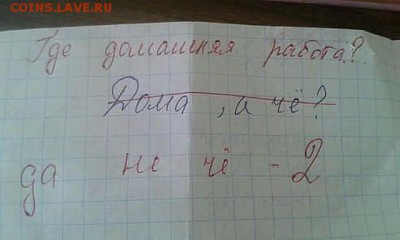 COINS.LAVE.RU
Где домашняя работа?
Дома, а чё?
да не чё - 2